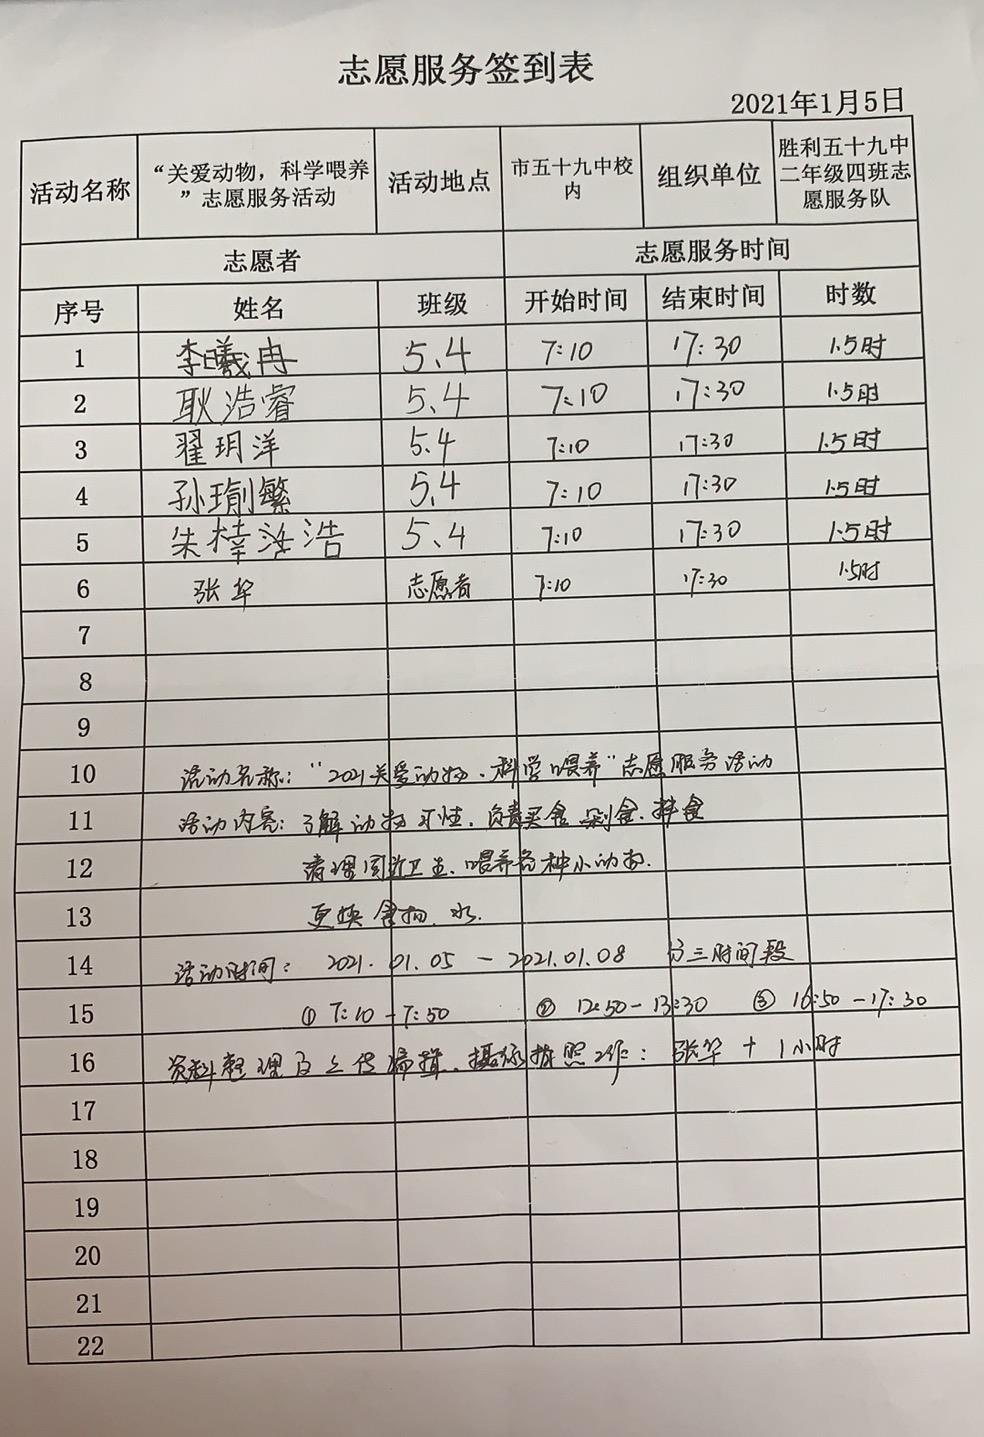 志愿服务签到表
2021年1月5日
活动名称 “关爱动物，科学喂养”志愿服务活动 活动地点 市五十九中校内 组织单位 胜利五十九中二年级四班志愿服务队
志愿者 志愿服务时间
序号 姓名 班级 开始时间 结束时间 时数
1 李曦冉 5.4 7:10 17:30 1.5时
2 耿浩睿 5.4 7:10 17:30 1.5时
3 翟玥洋 5.4 7:10 17:30 1.5时
4 孙瑜繁 5.4 7:10 17:30 1.5时
5 朱梓浩 5.4 7:10 17:30 1.5时
6 张华 志愿者 7:10 17:30 1.5时
7
8
9
10 活动名称：“2021关爱动物、科学喂养”志愿服务活动
11 活动内容：了解动物习性、负责买食、剁食、拌食
12 清理周边卫生、喂养各种小动物.
13 更换食物、水.
14 活动时间：2021.01.05－2021.01.08 分三时间段
15 ① 7:10－7:50 ② 12:50－13:30 ③ 16:50－17:30
16 资料整理及上传编辑、摄像拍照工作：张华＋1小时
17
18
19
20
21
22